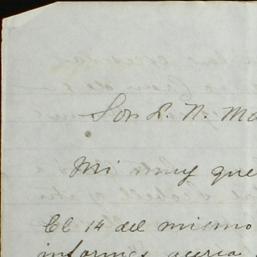 Sor. D. N. Mo
Mi muy que
El 14 del mismo
informes acerca